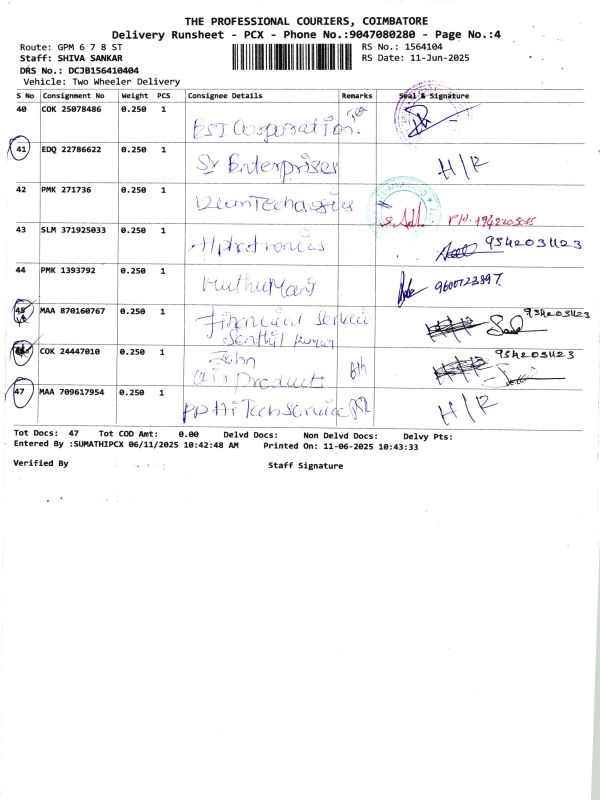 THE PROFESSIONAL COURIERS, COIMBATORE
Delivery Runsheet - PCX - Phone No.:9047080280 - Page No.:4
Route: GPM 6 7 8 ST
RS No.: 1564104
Staff: SHIVA SANKAR
RS Date: 11-Jun-2025
DRS No.: DCJB156410404
Vehicle: Two Wheeler Delivery
S No Consignment No Weight PCS Consignee Details Remarks Seal & Signature
40 COK 25078486 0.250 1
EST Corporation.
41 EDQ 22786622 0.250 1
Sy Enterprises H/R
42 PMK 271736 0.250 1
43 SLM 371925033 0.250 1
Alphatronics 9342031123
44 PMK 1393792 0.250 1
Muthu Mani 9600723897
45 MAA 870160767 0.250 1
Financial Service 9342031123
Senthil kumar
COK 24447010 0.250 1
John 9342031123
air products 8th
47 MAA 709617954 0.250 1
PP Hi Tech Service H/R
Tot Docs: 47 Tot COD Amt: 0.00 Delvd Docs: Non Delvd Docs: Delvy Pts:
Entered By :SUMATHIPCX 06/11/2025 10:42:48 AM Printed On: 11-06-2025 10:43:33
Verified By Staff Signature